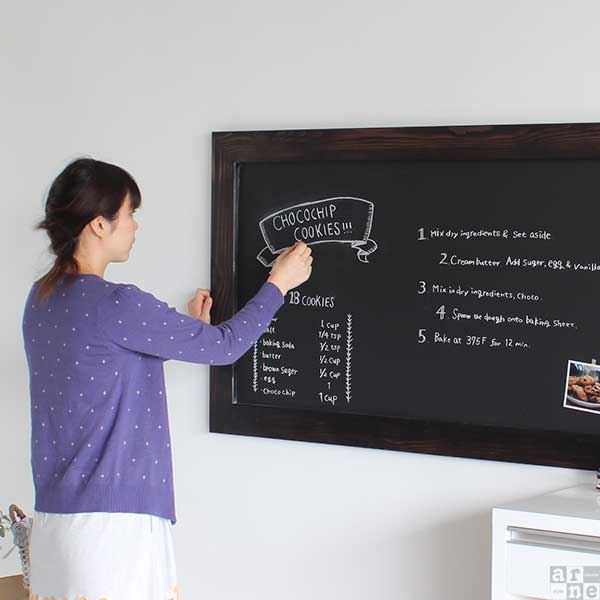 CHOCOCHIP
COOKIES!!!
18 COOKIES
1 cup
1/4 tsp
· baking soda 1/2 tsp
· butter 1/2 cup
· brown suger 1/2 cup
· egg 1
· chocochip 1 cup
1. Mix dry ingredients & set aside.
2. Cream butter. Add suger, egg, & vanilla
3. Mix in dry ingredients, choco.
4. Spoon the dough onto baking sheet.
5. Bake at 375 F for 12 min.
ar
ne